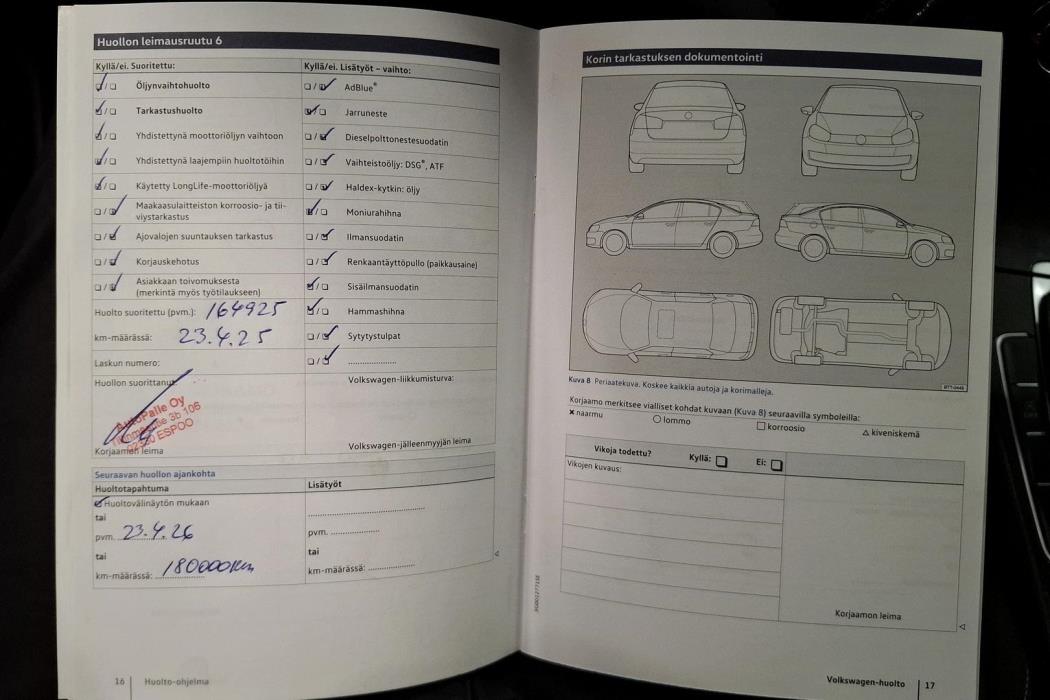 Huollon leimausruutu 6
Kyllä/ei. Suoritettu:
Öljynvaihtohuolto
Tarkastushuolto
Yhdistettynä moottoriöljyn vaihtoon
Yhdistettynä laajempiin huoltotöihin
Käytetty LongLife-moottoriöljyä
Maakaasulaitteiston korroosio- ja tii-
viystarkastus
Ajovalojen suuntauksen tarkastus
Korjauskehotus
Asiakkaan toivomuksesta
(merkintä myös työtilaukseen)
Huolto suoritettu (pvm.): 164925
km-määrässä: 23.4.25
Laskun numero:
Huollon suorittanut
AutoPalle Oy
3b 106
ESPOO
Korjaamon leima
Kyllä/ei. Lisätyöt – vaihto:
AdBlue®
Jarruneste
Dieselpolttonestesuodatin
Vaihteistoöljy: DSG®, ATF
Haldex-kytkin: öljy
Moniurahihna
Ilmansuodatin
Renkaantäyttöpullo (paikkausaine)
Sisäilmansuodatin
Hammashihna
Sytytystulpat
Volkswagen-liikkumisturva:
Volkswagen-jälleenmyyjän leima
Seuraavan huollon ajankohta
Huoltotapahtuma
Huoltovälinäytön mukaan
tai
pvm. 23.4.26
tai
km-määrässä: 180000km
Lisätyöt
pvm.
tai
km-määrässä:
16 Huolto-ohjelma
Korin tarkastuksen dokumentointi
BTT-0448
Kuva 8 Periaatekuva. Koskee kaikkia autoja ja korimalleja.
Korjaamo merkitsee vialliset kohdat kuvaan (Kuva 8) seuraavilla symboleilla:
× naarmu ○ lommo □ korroosio △ kiveniskemä
Vikoja todettu? Kyllä: Ei:
Vikojen kuvaus:
Korjaamon leima
Volkswagen-huolto 17